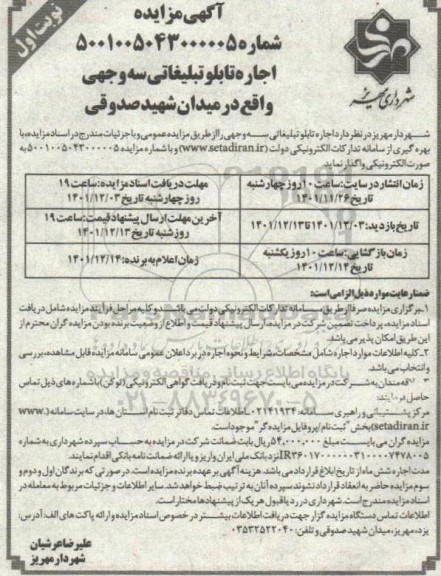 نوبت اول
آگهی مزایده
شماره ۵۰۰۱۰۰۵۰۴۳۰۰۰۰۰۵
اجاره تابلو تبلیغاتی سه وجهی
واقع در میدان شهید صدوقی
شهرداری مهریز
شهرداری مهریز در نظر دارد اجاره تابلو تبلیغاتی سه وجهی را از طریق مزایده عمومی و با جزئیات مندرج در اسناد مزایده، با
بهره گیری از سامانه تدارکات الکترونیکی دولت (www.setadiran.ir) و با شماره مزایده ۵۰۰۱۰۰۵۰۴۳۰۰۰۰۰۵ به
صورت الکترونیکی واگذار نماید.
زمان انتشار در سایت: ساعت ۱۰ روز چهارشنبه
تاریخ ۱۴۰۱/۱۱/۲۶
مهلت دریافت اسناد مزایده: ساعت ۱۹
روز چهارشنبه تاریخ ۱۴۰۱/۱۲/۰۳
تاریخ بازدید: ۱۴۰۱/۱۲/۰۳ تا ۱۴۰۱/۱۲/۱۳
آخرین مهلت ارسال پیشنهاد قیمت: ساعت ۱۹
روز شنبه تاریخ ۱۴۰۱/۱۲/۱۳
زمان بازگشایی: ساعت ۱۰ روز یکشنبه
تاریخ ۱۴۰۱/۱۲/۱۴
زمان اعلام به برنده: ۱۴۰۱/۱۲/۱۴
ضمنا رعایت موارد ذیل الزامی است:
۱ـ برگزاری مزایده صرفا از طریق سامانه تدارکات الکترونیکی دولت می باشد و کلیه مراحل فرآیند مزایده شامل دریافت
اسناد مزایده، پرداخت تضمین شرکت در مزایده، ارسال پیشنهاد قیمت و اطلاع از وضعیت برنده بودن مزایده گران محترم از
این طریق امکان پذیر می باشد.
۲ـ کلیه اطلاعات موارد اجاره شامل مشخصات، شرایط و نحوه اجاره در برد اعلان عمومی سامانه مزایده قابل مشاهده، بررسی
و انتخاب می باشد.
۳ـ علاقه مندان به شرکت در مزایده می بایست جهت ثبت نام و دریافت گواهی الکترونیکی (توکن) با شماره های ذیل تماس
حاصل فرمایند:
مرکز پشتیبانی و راهبری سامانه: ۰۲۱۴۱۹۳۴ ـ اطلاعات تماس دفاتر ثبت نام استان ها، در سایت سامانه (www.
setadiran.ir) بخش "ثبت نام/پروفایل مزایده گر" موجود است.
مزایده گران می بایست مبلغ ۵۴,۰۰۰,۰۰۰ ریال بابت ضمانت شرکت در مزایده به حساب سپرده شهرداری به شماره
نزد بانک ملی ایران واریز و یا ارائه ضمانت نامه بانکی اقدام نمایند.
مدت اجاره شش ماه از تاریخ ابلاغ قرارداد می باشد. هزینه آگهی بر عهده برنده مزایده است. در صورتی که برندگان اول و دوم و
سوم مزایده حاضر به انعقاد قرارداد نشوند سپرده آنان به ترتیب ضبط خواهد شد. سایر اطلاعات و جزئیات مربوط به معامله در
اسناد مزایده مندرج است. شهرداری در رد یا قبول هر یک از پیشنهادها مختار است.
اطلاعات تماس دستگاه مزایده گزار جهت دریافت اطلاعات بیشتر در خصوص اسناد مزایده و ارائه پاکت های الف: آدرس:
یزد، مهریز، میدان شهید صدوقی و تلفن: ۰۳۵۳۲۵۲۲۰۴۰
علیرضا عرشیان
شهردار مهریز
پایگاه اطلاع رسانی مناقصه و مزایده
۰۲۱-۸۸۳۴۹۶۷۰-۵